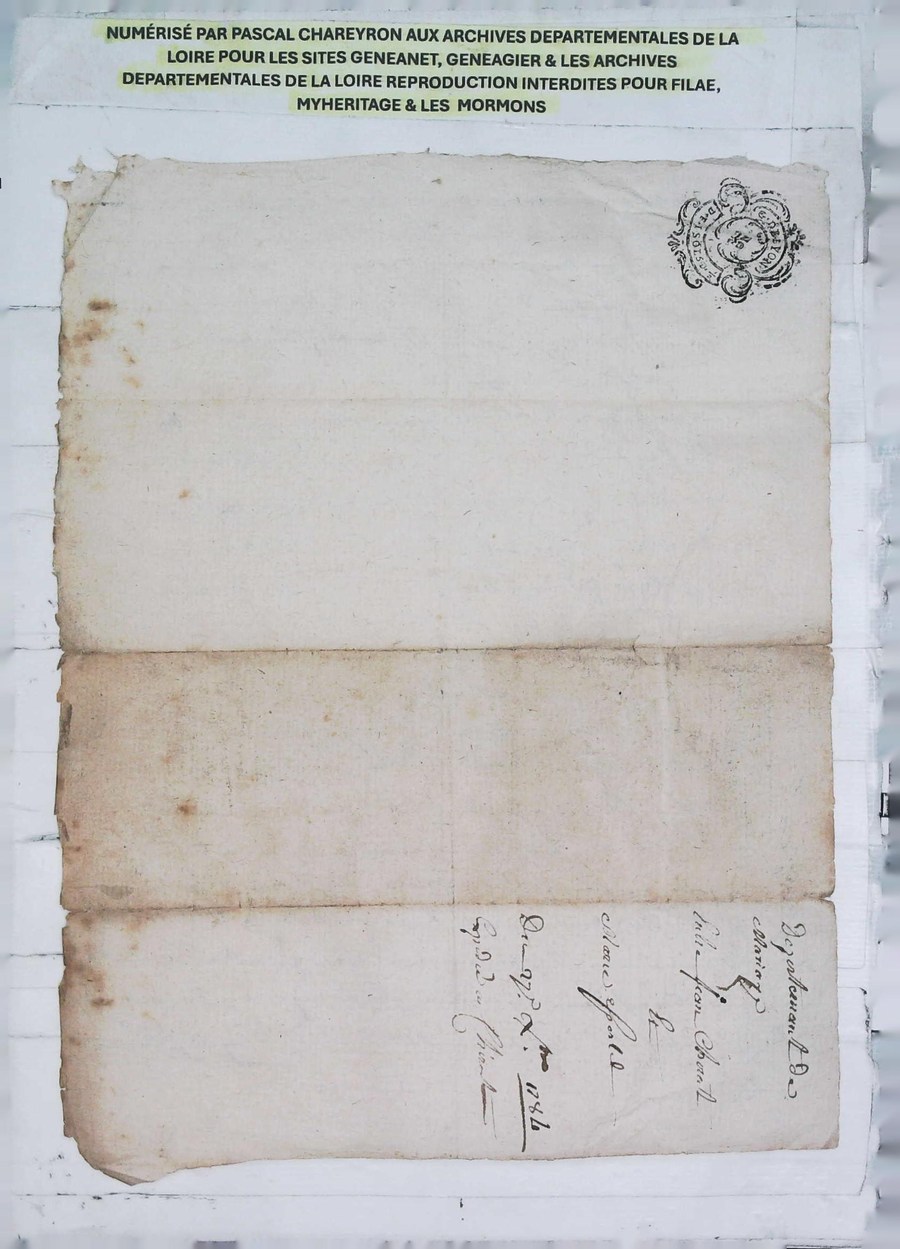 NUMÉRISÉ PAR PASCAL CHAREYRON AUX ARCHIVES DEPARTEMENTALES DE LA
LOIRE POUR LES SITES GENEANET, GENEAGIER & LES ARCHIVES
DEPARTEMENTALES DE LA LOIRE REPRODUCTION INTERDITES POUR FILAE,
MYHERITAGE & LES MORMONS
G. DE LYON
Departement de
Mariage
Entre jean
Et
Marie
Du 27e Xbre 1784